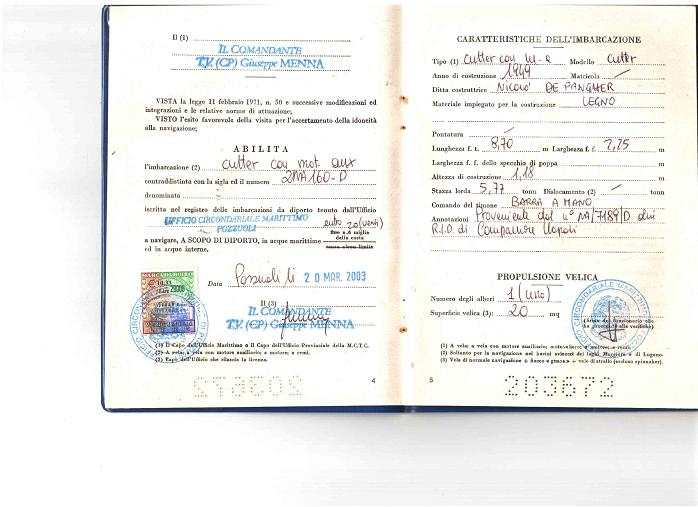 Il (1)
IL COMANDANTE
T.V. (CP) Giuseppe MENNA
VISTA la legge 11 febbraio 1971, n. 50 e successive modificazioni ed
integrazioni e le relative norme di attuazione;
VISTO l'esito favorevole della visita per l'accertamento della idoneità
alla navigazione;
ABILITA
l'imbarcazione (2) cutter con mot. aux
contraddistinta con la sigla ed il numero 2NA160-D
denominata
iscritta nel registro delle imbarcazioni da diporto tenuto dall'Ufficio
UFFICIO CIRCONDARIALE MARITTIMO
POZZUOLI
entro 20 (venti)
a navigare, A SCOPO DI DIPORTO, in acque marittime fino a 6 miglia dalla costa
senza alcun limite
ed in acque interne.
MARCA DA BOLLO
Data Pozzuoli lì 20 MAR. 2003
Il (3)
IL COMANDANTE
T.V. (CP) Giuseppe MENNA
(1) Il Capo dell'Ufficio Marittimo o il Capo dell'Ufficio Provinciale della M.C.T.C.
(2) A vela; a vela con motore ausiliario; a motore; a remi.
(3) Capo dell'Ufficio che rilascia la licenza.
4
203672
CARATTERISTICHE DELL'IMBARCAZIONE
Tipo (1) Cutter con M-a Modello Cutter
Anno di costruzione 1949 Matricola /
Ditta costruttrice NICOLO' DE PANGHER
Materiale impiegato per la costruzione LEGNO
Pontatura /
Lunghezza f. t. 8,70 m Larghezza f. f. 2,25 m
Larghezza f. f. dello specchio di poppa m
Altezza di costruzione 1,18 m
Stazza lorda 5,77 tonn Dislocamento (2) / tonn
Comando del timone BARRA A MANO
Annotazioni Proveniente dal n° NA/7189/D dei
R.I.D. di Compamare Napoli
PROPULSIONE VELICA
Numero degli alberi 1 (uno)
Superficie velica (3): 20 mq
(firma del funzionario che
ha proceduto alle verifiche)
(1) A vela; a vela con motore ausiliario; motoveliero; a motore; a remi.
(2) Soltanto per la navigazione nei bacini svizzeri dei laghi Maggiore e di Lugano.
(3) Vela di normale navigazione o fiocco e genoa + vele di strallo (escluso spinnaker).
5
203672